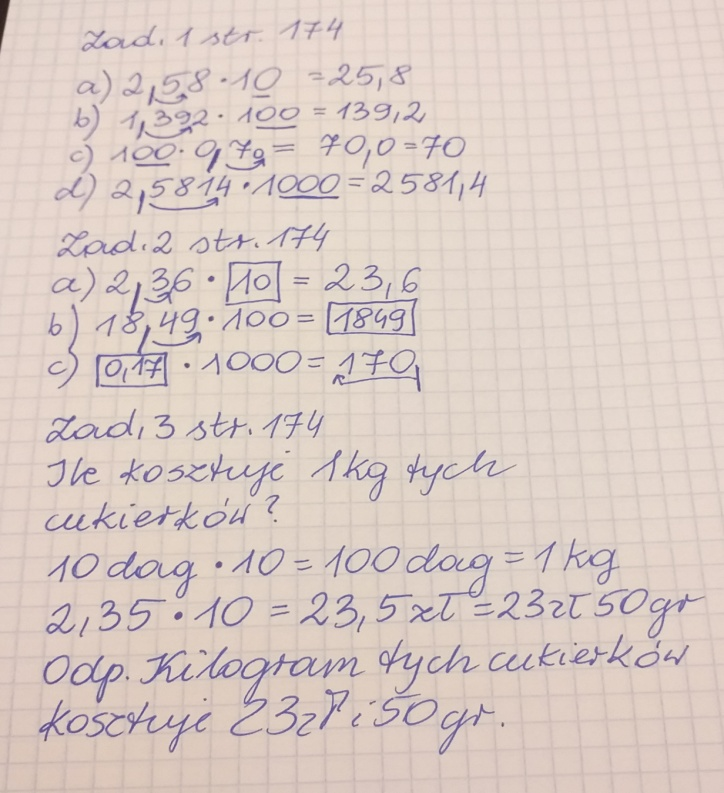 Zad. 1 str. 174
a) 2,58 · 10 = 25,8
b) 1,392 · 100 = 139,2
c) 100 · 0,70 = 70,0 = 70
d) 2,5814 · 1000 = 2581,4
Zad. 2 str. 174
a) 2,36 · 10 = 23,6
b) 18,49 · 100 = 1849
c) 0,17 · 1000 = 170,
Zad. 3 str. 174
Ile kosztuje 1kg tych
cukierków?
10 dag · 10 = 100 dag = 1 kg
2,35 · 10 = 23,5 zł = 23 zł 50 gr
Odp. Kilogram tych cukierków
kosztuje 23 zł i 50 gr.